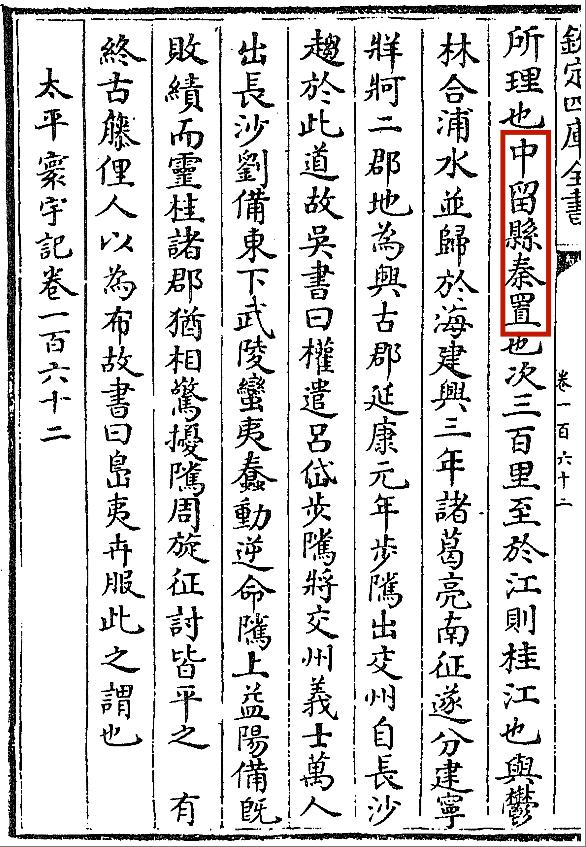 欽定四庫全書
卷一百六十二
所理也中留縣秦置也次三百里至於江則桂江也與鬱
林合浦水並歸於海建興三年諸葛亮南征遂分建寧
牂牁二郡地為興古郡延康元年步隲出交州自長沙
趨於此道故吳書曰權遣呂岱步隲將交州義士萬人
出長沙劉備東下武陵蠻夷蠢動逆命隲上益陽備旣
敗績而靈桂諸郡猶相驚擾隲周旋征討皆平之 有
終古藤俚人以為布故書曰島夷卉服此之謂也
太平寰宇記卷一百六十二